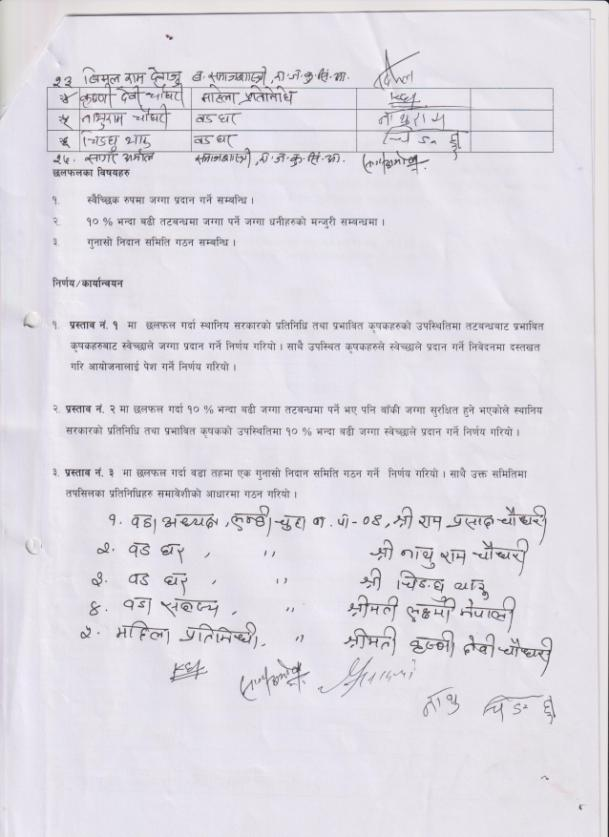 २३ बिमल राम
कृष्णी देवी चौधरी महिला प्रतिनिधि KCH
नाथुराम चौधरी वड घर नाथुराम
चिडघु थारु वड घर चि ड घु
छलफलका विषयहरु
१. स्वैच्छिक रुपमा जग्गा प्रदान गर्ने सम्बन्धि ।
२. १० % भन्दा बढी तटबन्धमा जग्गा पर्ने जग्गा धनीहरुको मन्जुरी सम्बन्धमा ।
३. गुनासो निदान समिति गठन सम्बन्धि ।
निर्णय/कार्यान्वयन
१. प्रस्ताव नं. १ मा छलफल गर्दा स्थानिय सरकारको प्रतिनिधि तथा प्रभावित कृषकहरुको उपस्थितिमा तटबन्धबाट प्रभावित
कृषकहरुबाट स्वेच्छाले जग्गा प्रदान गर्ने निर्णय गरियो । साथै उपस्थित कृषकहरुले स्वेच्छाले प्रदान गर्ने निवेदनमा दस्तखत
गरि आयोजनालाई पेश गर्ने निर्णय गरियो ।
२. प्रस्ताव नं. २ मा छलफल गर्दा १० % भन्दा बढी जग्गा तटबन्धमा पर्ने भए पनि बाँकी जग्गा सुरक्षित हुने भएकोले स्थानिय
सरकारको प्रतिनिधि तथा प्रभावित कृषकको उपस्थितिमा १० % भन्दा बढी जग्गा स्वेच्छाले प्रदान गर्ने निर्णय गरियो ।
३. प्रस्ताव नं. ३ मा छलफल गर्दा वडा तहमा एक गुनासो निदान समिति गठन गर्ने निर्णय गरियो । साथै उक्त समितिमा
तपसिलका प्रतिनिधिहरु समावेशीको आधारमा गठन गरियो ।
१. वडा अध्यक्ष, लम्की चुहा न.पा-०४, श्री राम प्रसाद चौधरी
२. वड घर , ,, श्री नाथु राम चौधरी
३. वड घर , ,, श्री चिडघु थारु
४. वडा सदस्य , ,, श्रीमती लक्ष्मी नेपाली
५. महिला प्रतिनिधी, ,, श्रीमती कृष्णी देवी चौधरी
KCH
नाथु चि ड घु